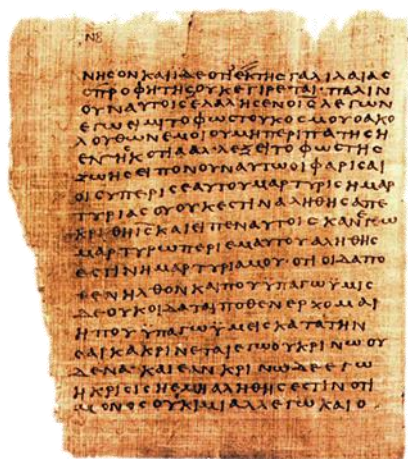 ΝΒ
ΝΗϹΟΝΚΑΙΪΔΕΟΤΙΕΚΤΗϹΓΑΛΙΛΑΙΑϹ
ΟΠΡΟΦΗΤΗϹΟΥΚΕΓΙΡΕΤΑΙ·ΠΑΛΙΝ
ΟΥΝΑΥΤΟΙϹΕΛΑΛΗϹΕΝΟΙϹΛΕΓΩΝ
ΕΓΩΕΙΜΙΤΟΦΩϹΤΟΥΚΟϹΜΟΥΟΑΚΟ
ΛΟΥΘΩΝΕΜΟΙΟΥΜΗΠΕΡΙΠΑΤΗϹΗ
ΕΝΤΗϹΚΟΤΙΑΑΛΛΕΞΕΙΤΟΦΩϹΤΗϹ
ΖΩΗϹΕΙΠΟΝΟΥΝΑΥΤΩΟΙΦΑΡΙϹΑΙ
ΟΙϹΥΠΕΡΙϹΕΑΥΤΟΥΜΑΡΤΥΡΙϹΗΜΑΡ
ΤΥΡΙΑϹΟΥΟΥΚΕϹΤΙΝΑΛΗΘΗϹΑΠΕ
ΚΡΙΘΗΙϹΚΑΙΕΙΠΕΝΑΥΤΟΙϹΚΑΝΕΓΩ
ΜΑΡΤΥΡΩΠΕΡΙΕΜΑΥΤΟΥΑΛΗΘΗϹ
ΕϹΤΙΝΗΜΑΡΤΥΡΙΑΜΟΥΟΤΙΟΙΔΑΠΟ
ΘΕΝΗΛΘΟΝΚΑΙΠΟΥΫΠΑΓΩΫΜΙϹ
ΔΕΟΥΚΟΙΔΑΤΑΙΠΟΘΕΝΕΡΧΟΜΑΙ
ΗΠΟΥΫΠΑΓΩΫΜΕΙϹΚΑΤΑΤΗΝ
ϹΑΙΚΑΚΡΙΝΕΤΑΙΕΓΩΟΥΚΡΙΝΩΟΥ
ΔΕΝΑ·ΚΑΙΕΑΝΚΡΙΝΩΔΕΕΓΩ
ΗΚΡΙϹΙϹΗΕΜΗΑΛΗΘΗϹΕϹΤΙΝΟΤΙ
ΜΟΝΟϹΟΥΚΙΜΙΑΛΛΕΓΩΚΑΙΟ